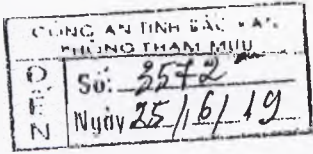 CÔNG AN TỈNH BẮC KẠN
PHÒNG THAM MƯU
ĐẾN
Số: 3572
Ngày 25/6/19